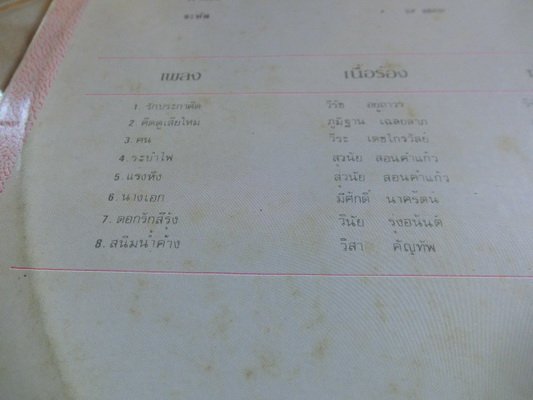 เพลง เนื้อร้อง
1. รักประกาศิต วิรัช อยู่ถาวร
2. คิดดูเสียใหม่ ภูมิฐาน
3. คน วีระ เดชไกรวัลย์
4. ระบำไฟ สุวนัย สอนคำแก้ว
5. แรงหึง สุวนัย สอนคำแก้ว
6. นางเอก มีศักดิ์ นาครัตน
7. ดอกรักสีรุ้ง วินัย รุ่งอนันต์
8. สนิมน้ำค้าง วิสา คัญทัพ